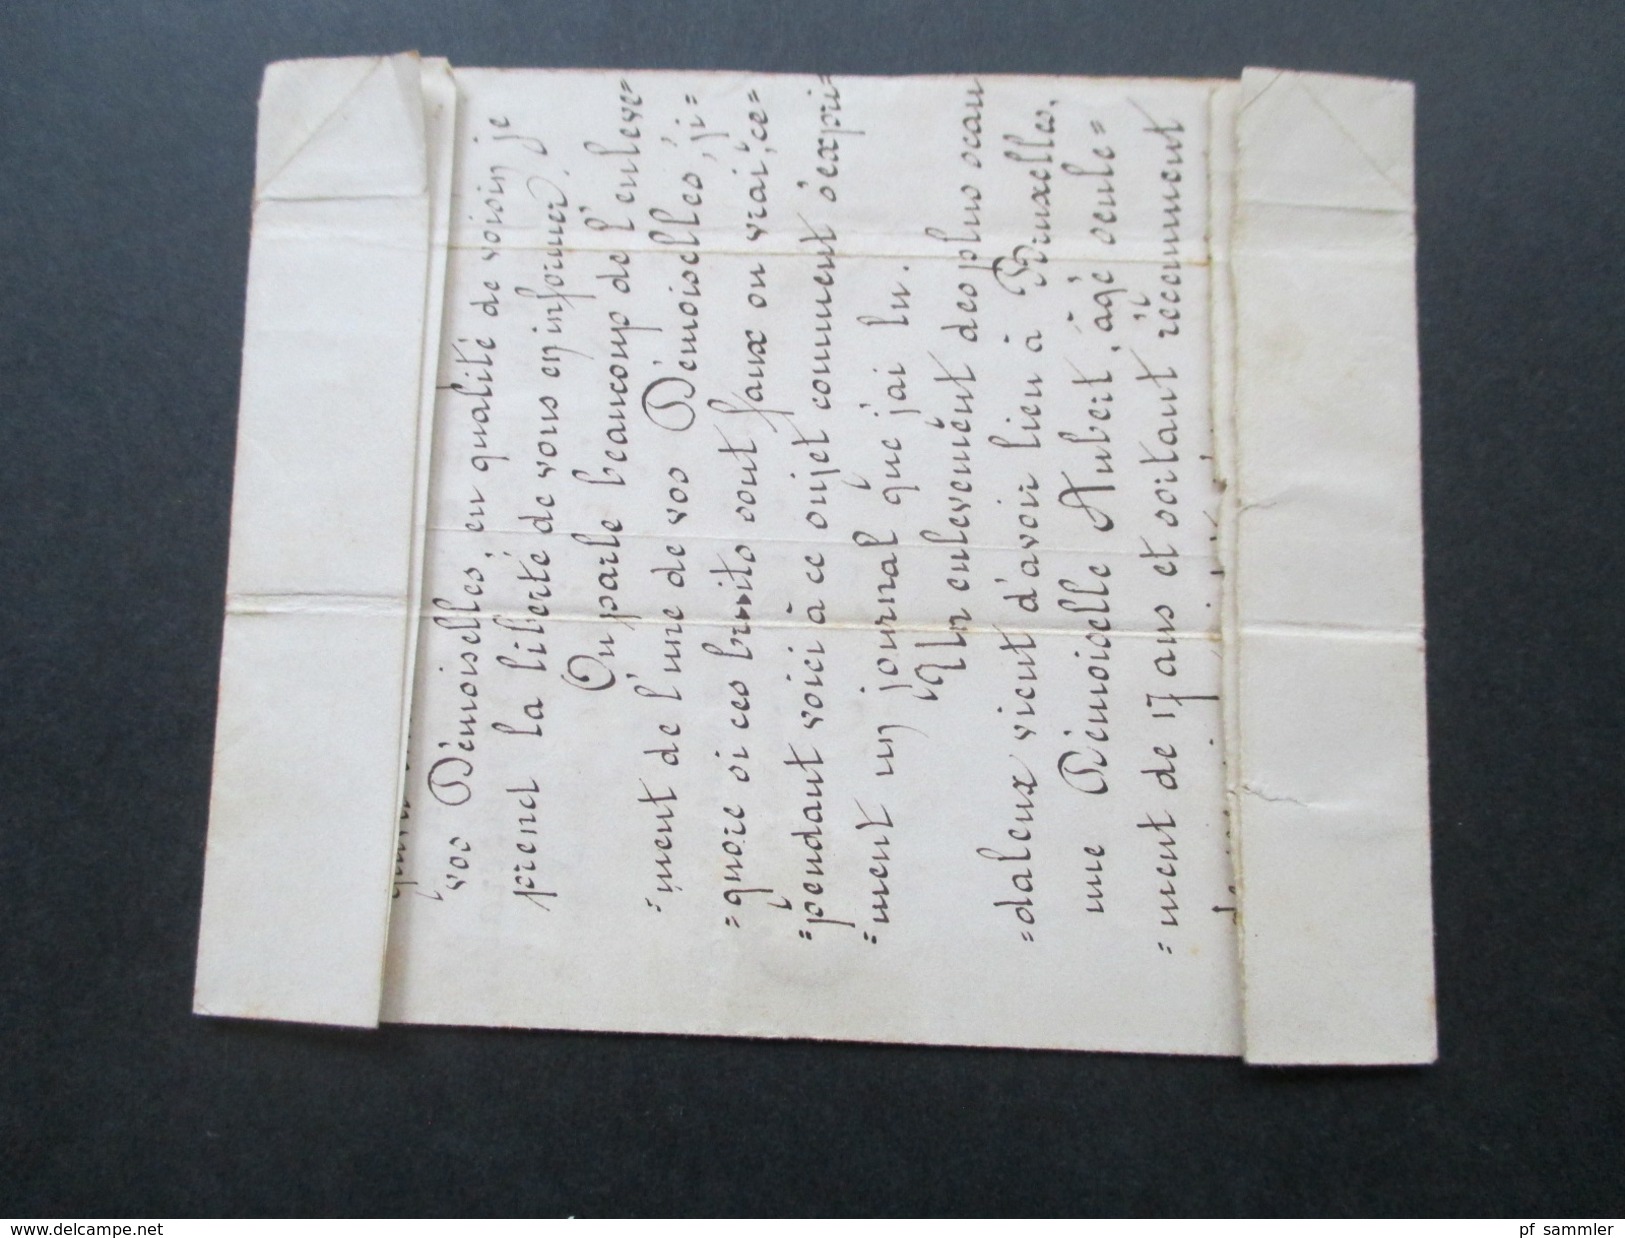 vos Démoiselles, en qualité de voisin je
prend la liberté de vous en informer.
On parle beaucoup de l'enleve=
=ment de l'une de vos Démoiselles, j'i=
=gnore si ces bruits sont faux ou vrai, ce=
=pendant voici à ce sujet comment s'expri=
=ment un journal que j'ai lu.
"Un enlevement des plus scan
=daleux vient d'avoir lieu à Bruxelles,
une Démoiselle Aubert, âgé seule=
=ment de 17 ans et sortant récemment
www.delcampe.net
pf_sammler